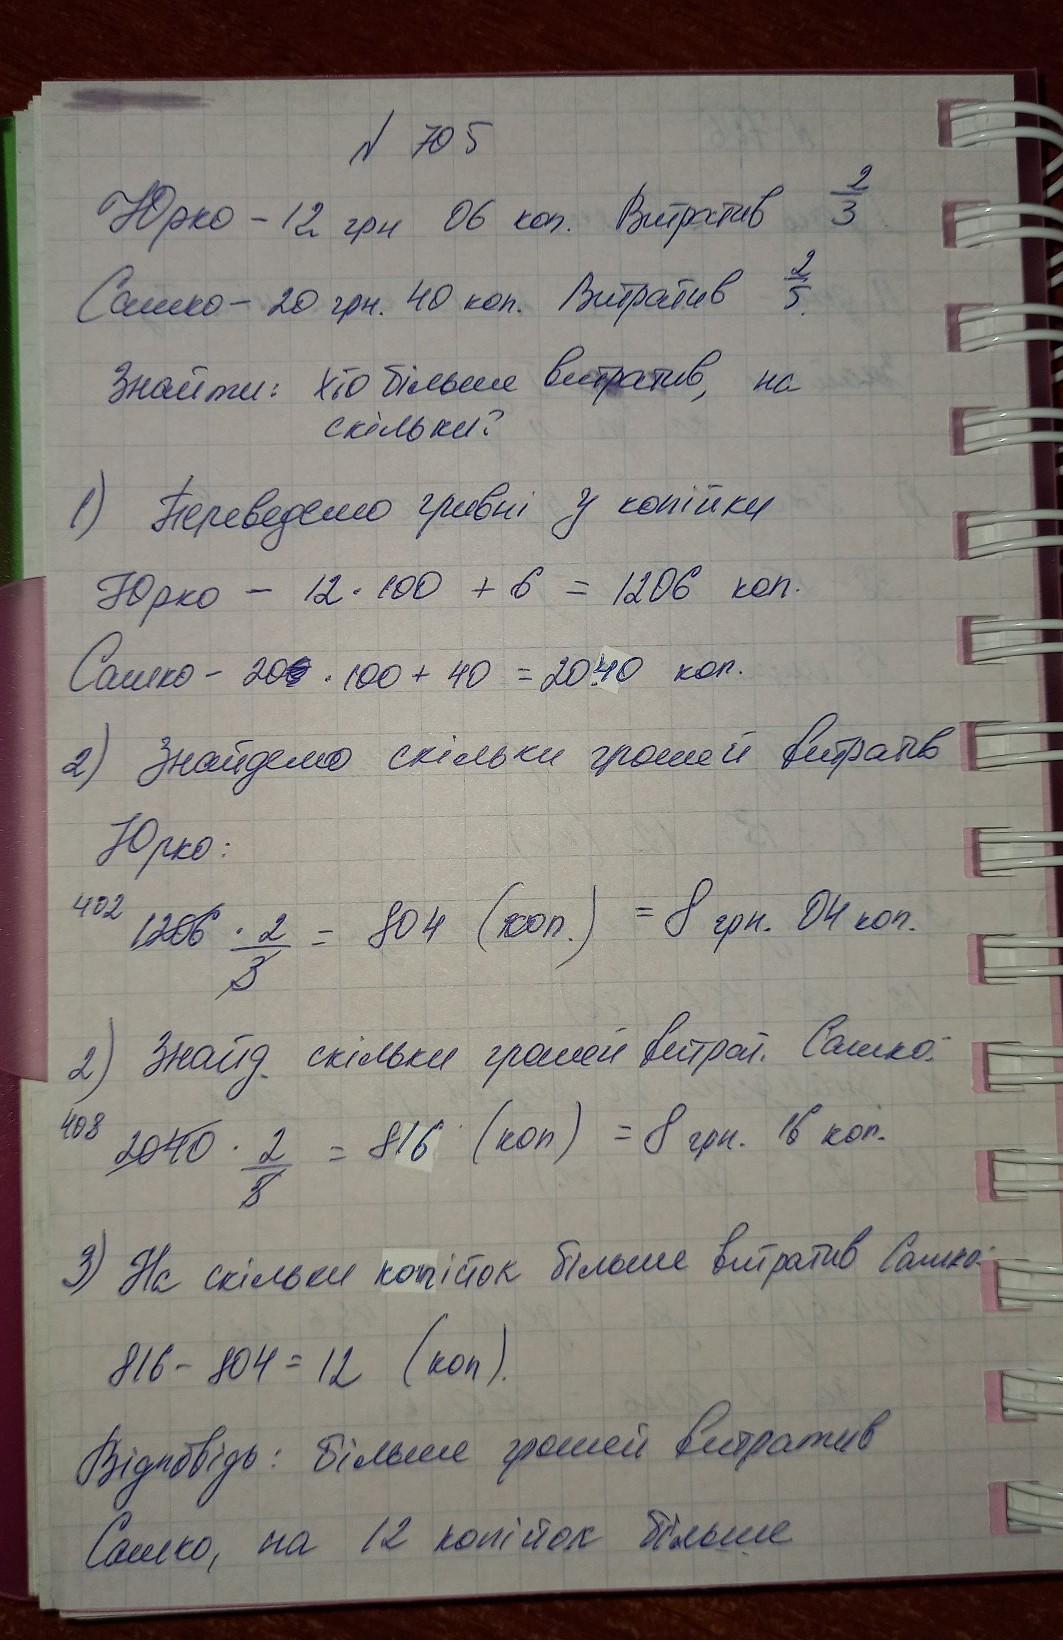 N 705
Юрко – 12 грн 06 коп. Витратив 2/3
Сашко – 20 грн. 40 коп. Витратив 2/5.
Знайти: хто більше витратив, на
скільки?
1) Переведемо гривні у копійки
Юрко – 12 · 100 + 6 = 1206 коп.
Сашко – 20 · 100 + 40 = 2040 коп.
2) Знайдемо скільки грошей витратив
Юрко:
402
1206 · 2/3 = 804 (коп.) = 8 грн. 04 коп.
2) Знайд. скільки грошей витрат. Сашко:
408
2040 · 2/5 = 816 (коп) = 8 грн. 16 коп.
3) На скільки копійок більше витратив Сашко:
816 – 804 = 12 (коп).
Відповідь: більше грошей витратив
Сашко, на 12 копійок більше